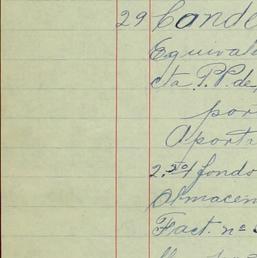 29 Conde
Equivale
cta P.P. de
por
Aporta
2.50 fondo
Almacen
Fact. nº